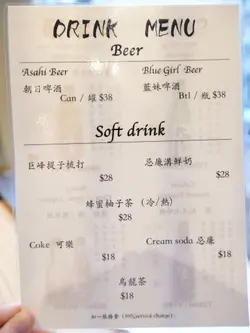 DRINK MENU
Beer
Asahi Beer
朝日啤酒
Can / 罐 $38
Blue Girl Beer
藍妹啤酒
Btl / 瓶 $38
Soft drink
巨峰提子梳打
$28
忌廉溝鮮奶
$28
蜂蜜柚子茶 (冷/熱)
$28
Coke 可樂
$18
Cream soda 忌廉
$18
烏龍茶
$18
加一服務費 (10%service charge)